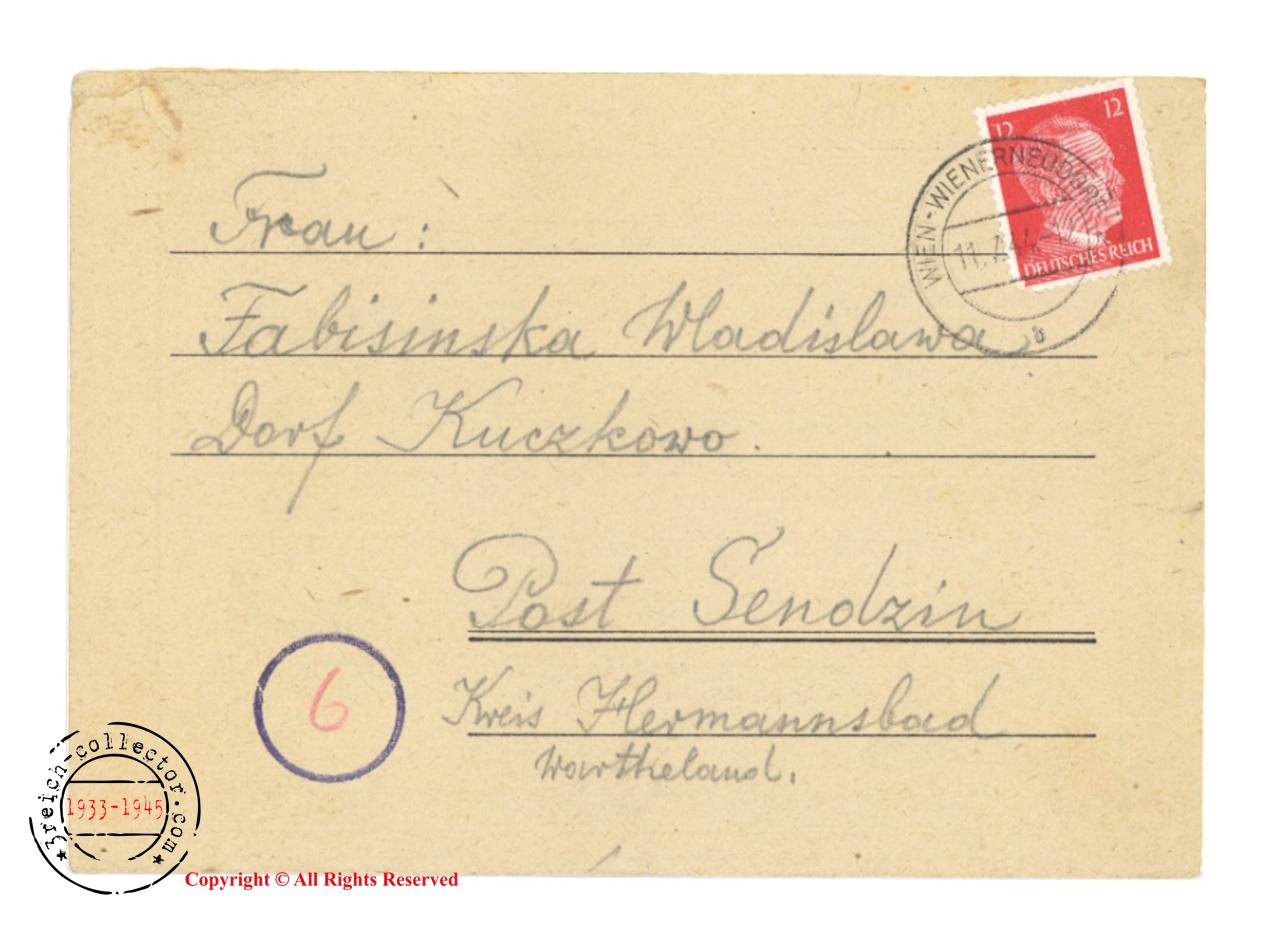 12 12
DEUTSCHES REICH
WIEN-WIENERNEUDORF
11.7.44
b
Frau :
Fabisinska Wladislawa
Dorf Kuczkowo.
Post Sendzin
Kreis Hermannsbad
Wartheland.
6
3reich-collector.com
1933-1945
Copyright © All Rights Reserved